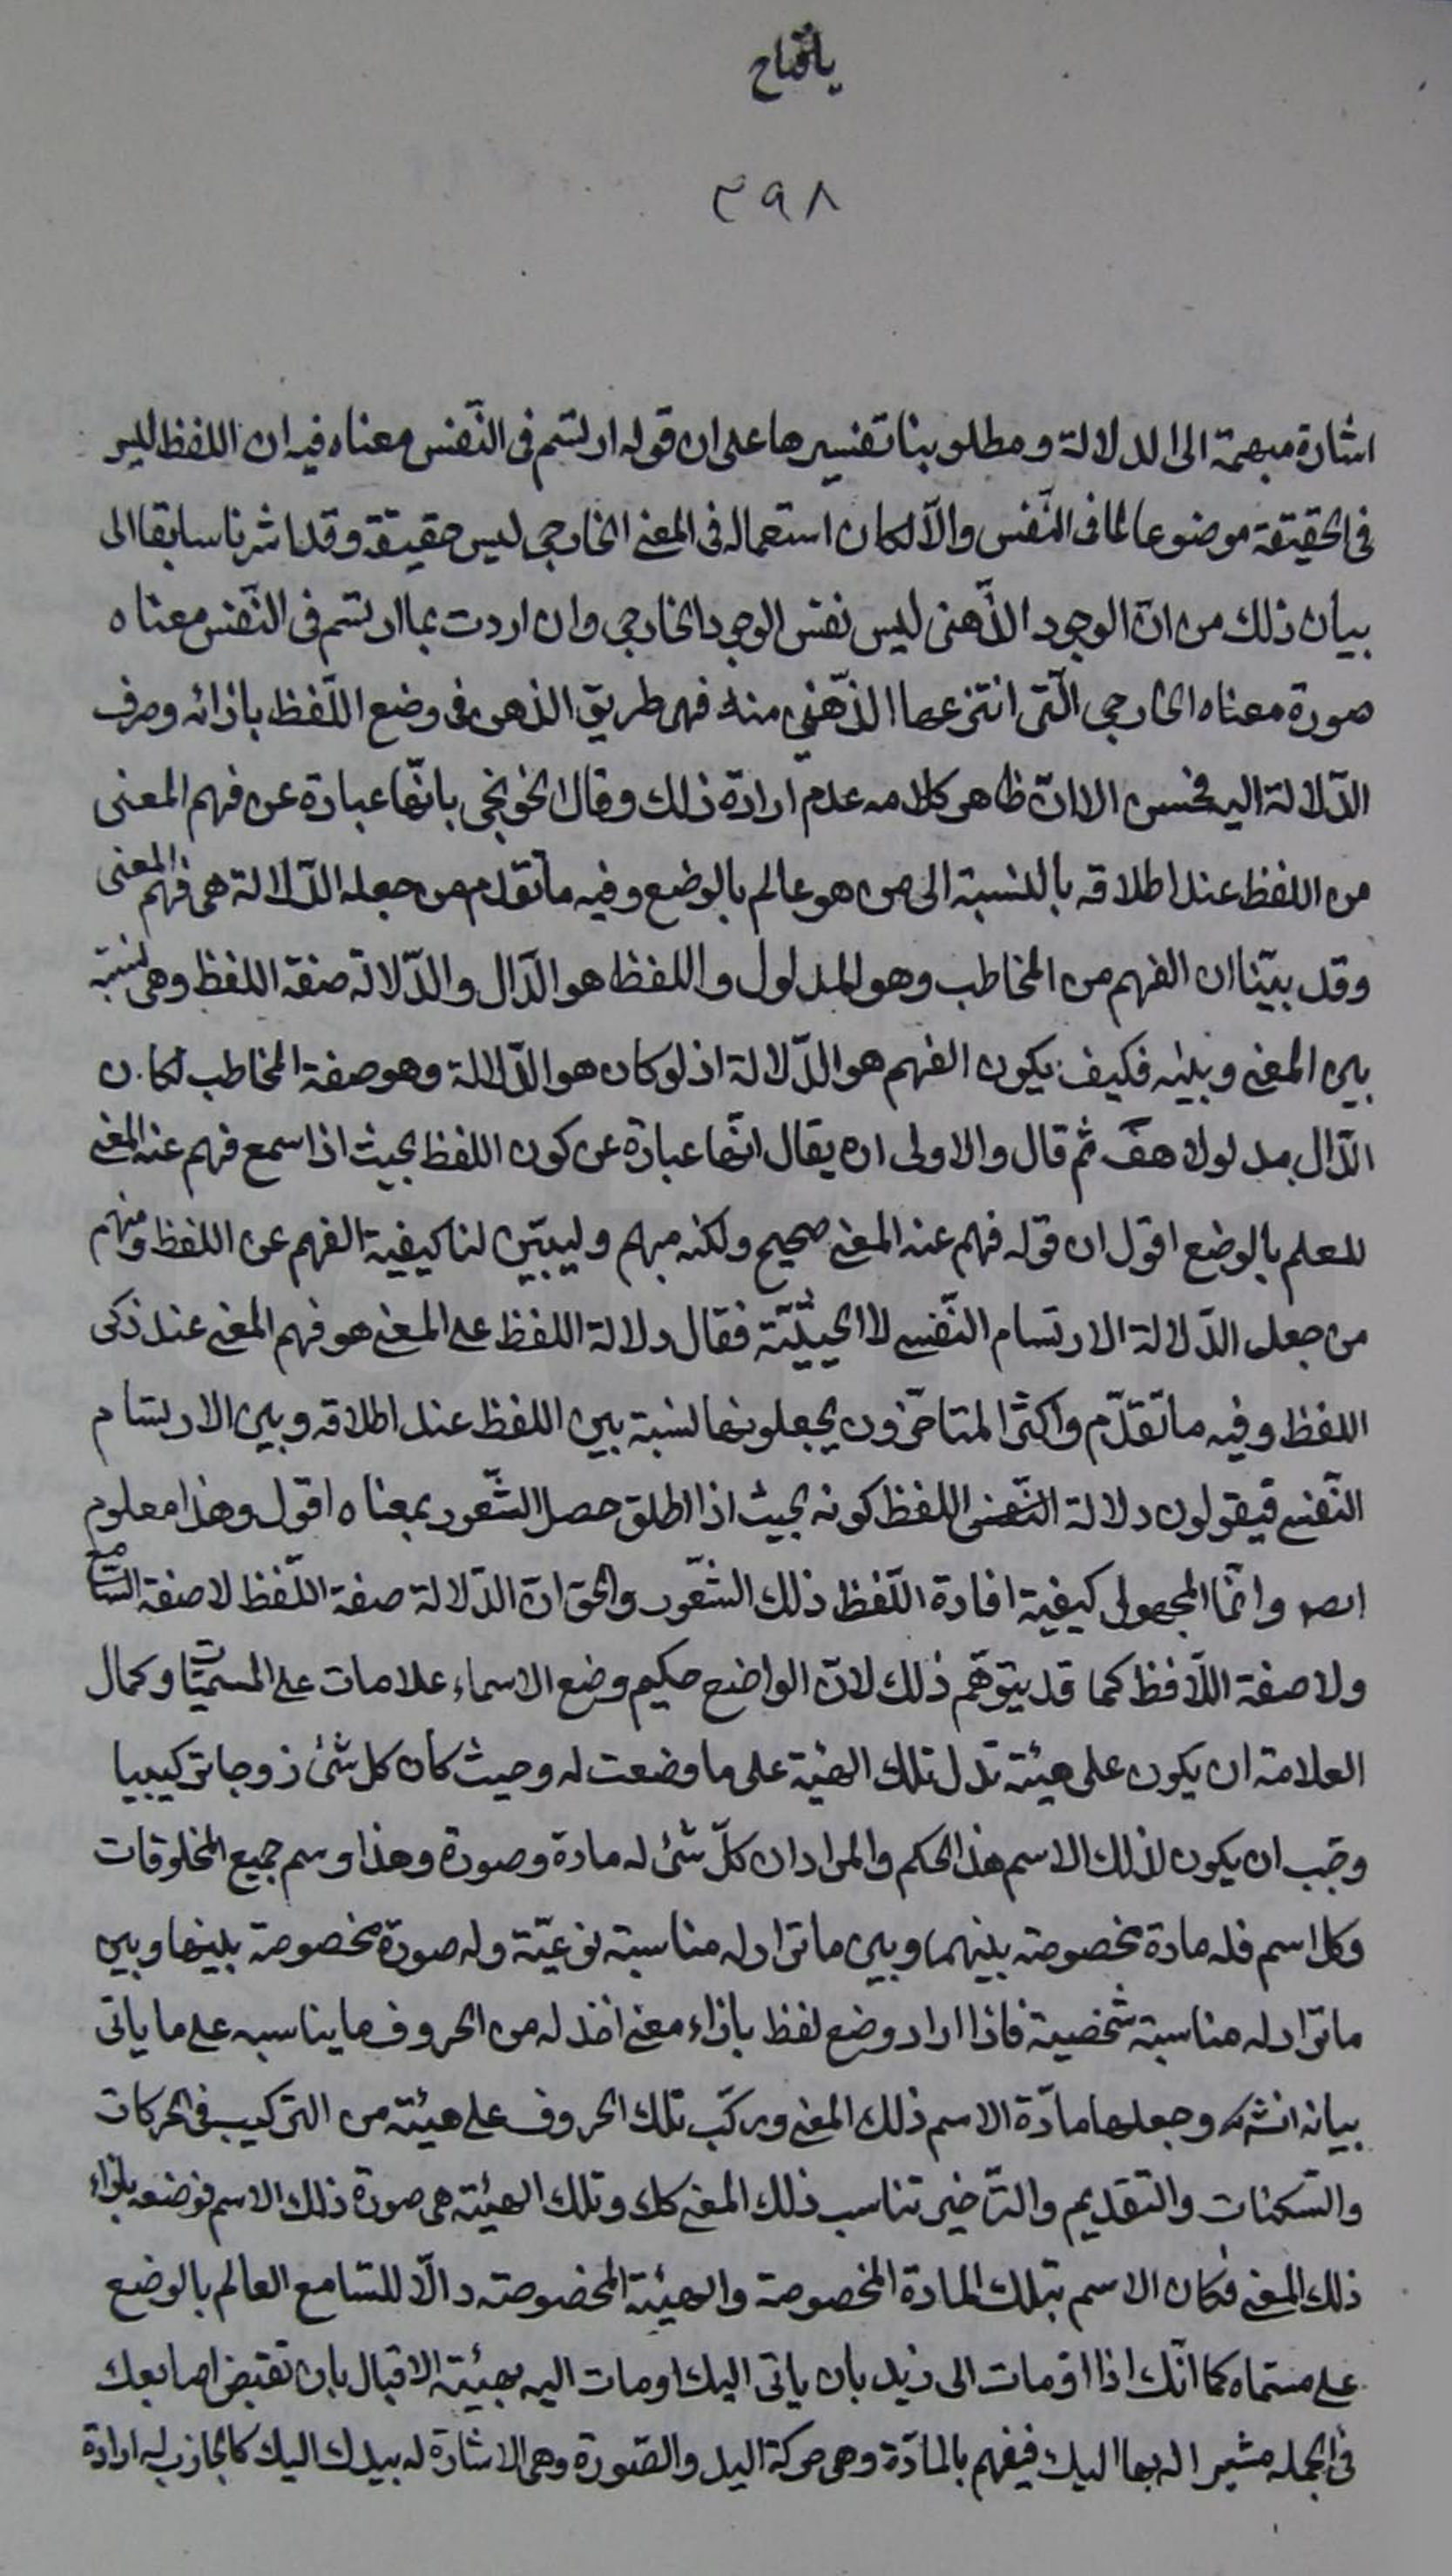 يا فتاح
٣٩٨
اشارة مبهمة الى الدلالة ومطلوبنا تفسيرها على ان قوله ارتسم فى النّفس معناه فيه ان اللفظ ليس
فى الحقيقة موضوعا لما فى النّفس والّا لكان استعماله فى المعنى الخارجى ليس حقيقة وقد اشرنا سابقا الى
بيان ذلك من انّ الوجود الذّهنى ليس نفس الوجود الخارجى وان اردت بما ارتسم فى النّفس معناه
صورة معناه الخارجى الّتى انتزعها الذّهنى منه فهو طريق الذهن فى وضع اللّفظ بازائه وصرف
الدّلالة اليه فحسن الا انّ ظاهر كلامه عدم ارادة ذلك وقال الخونجى بانّها عبارة عن فهم المعنى
من اللفظ عند اطلاقه بالنسبة الى من هو عالم بالوضع وفيه ما تقدم من جعله الدّلالة هى فهم المعنى
وقد بيّنا ان الفهم من المخاطب وهو المدلول واللفظ هو الدّال والدّلالة صفة اللفظ وهى نسبة
بين المعنى وبينه فكيف يكون الفهم هو الدّلالة اذ لو كان هو الدّلالة وهو صفة المخاطب لكان
الدّال مدلولا هف ثم قال والاولى ان يقال انّها عبارة عن كون اللفظ بحيث اذا سمع فهم عنه المعنى
للعلم بالوضع اقول ان قوله فهم عنه المعنى صحيح ولكنه مبهم وليبيّن لنا كيفية الفهم عن اللفظ ومنهم
من جعل الدّلالة الارتسام النّفسى لا الحيثيّة فقال دلالة اللفظ على المعنى هو فهم المعنى عند ذكر
اللفظ وفيه ما تقدّم واكثر المتاخّرون يجعلونها نسبة بين اللفظ عند اطلاقه وبين الارتسام
النّفسى فيقولون دلالة اللفظ كونه بحيث اذا اطلق حصل الشّعور بمعناه اقول وهذا معلوم
وانّما المجهول كيفية افادة اللّفظ ذلك الشّعور والحق انّ الدّلالة صفة اللّفظ لا صفة السّامع
ولا صفة اللّافظ كما قد يتوهّم ذلك لانّ الواضع حكيم وضع الاسماء علامات على المسمّيات وكمال
العلامة ان يكون على هيئة تدل تلك الهيئة على ما وضعت له وحيث كان كل شئ زوجا تركيبيا
وجب ان يكون لذلك الاسم هذا الحكم والمراد ان كلّ شئ له مادة وصورة وهذا وسم جميع المخلوقات
وكل اسم فله مادة مخصوصة بينهما وبين ما تراد له مناسبة نوعيّة وله صورة مخصوصة بينها وبين
ما تراد له مناسبة شخصية فاذا اراد وضع لفظ بازاء معنى اخذ له من الحروف ما يناسبه على ما ياتى
بيانه انشه وجعلها مادّة الاسم ذلك المعنى وركّب تلك الحروف على هيئة من التركيب فى الحركات
والسّكنات والتقديم والتّاخير تناسب ذلك المعنى كك وتلك الهيئة هى صورة ذلك الاسم فوضعه بازاء
ذلك المعنى فكان الاسم بتلك المادة المخصوصة والهيئة المخصوصة دالّا للسّامع العالم بالوضع
على مسماه كما انّك اذا اومات الى زيد بان ياتى اليك اومات اليه بهيئة الاقبال بان تقبض اصابعك
فى الجملة مشيرا له بها اليك فيفهم بالمادّة وهى حركة اليد والصّورة وهى الاشارة له بيدك اليك كالجاذب له ارادة